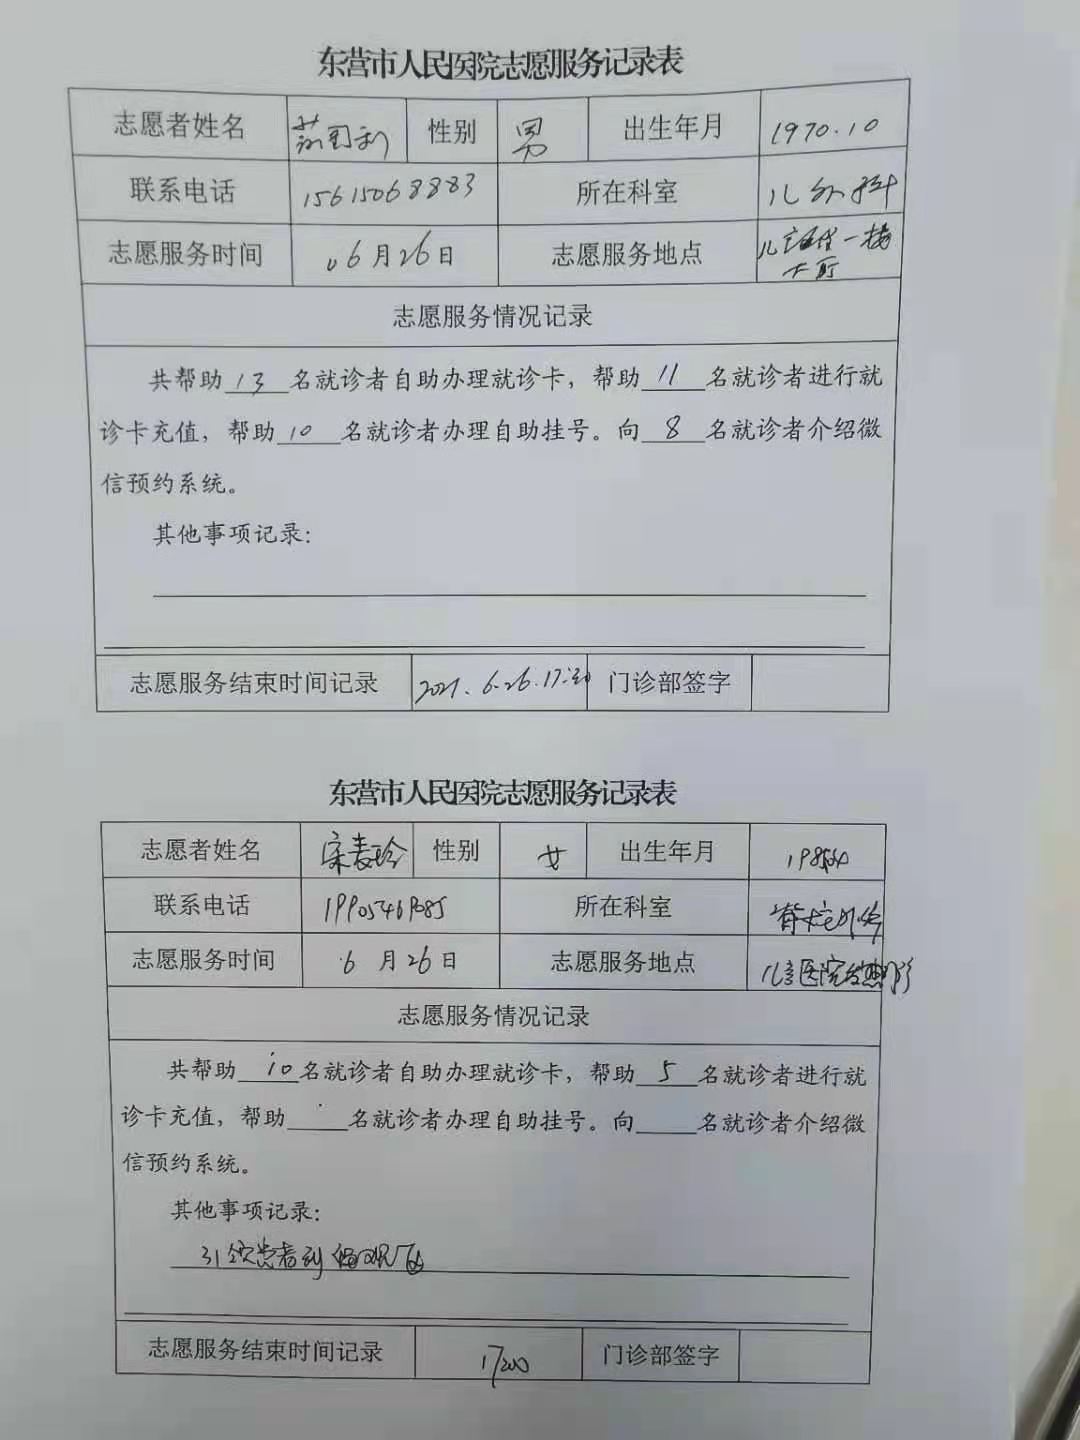 东营市人民医院志愿服务记录表
志愿者姓名 性别 男 出生年月 1970.10
联系电话 15615068883 所在科室 儿外科
志愿服务时间 06月26日 志愿服务地点 一楼
大厅
志愿服务情况记录
共帮助13名就诊者自助办理就诊卡，帮助11名就诊者进行就
诊卡充值，帮助10名就诊者办理自助挂号。向8名就诊者介绍微
信预约系统。
其他事项记录：
志愿服务结束时间记录 2021.6.26.17:30 门诊部签字
东营市人民医院志愿服务记录表
志愿者姓名 性别 女 出生年月
联系电话 所在科室 脊柱外科
志愿服务时间 6月26日 志愿服务地点 儿童医院发热门诊
志愿服务情况记录
共帮助10名就诊者自助办理就诊卡，帮助5名就诊者进行就
诊卡充值，帮助 名就诊者办理自助挂号。向 名就诊者介绍微
信预约系统。
其他事项记录：
引领患者到
志愿服务结束时间记录 1700 门诊部签字